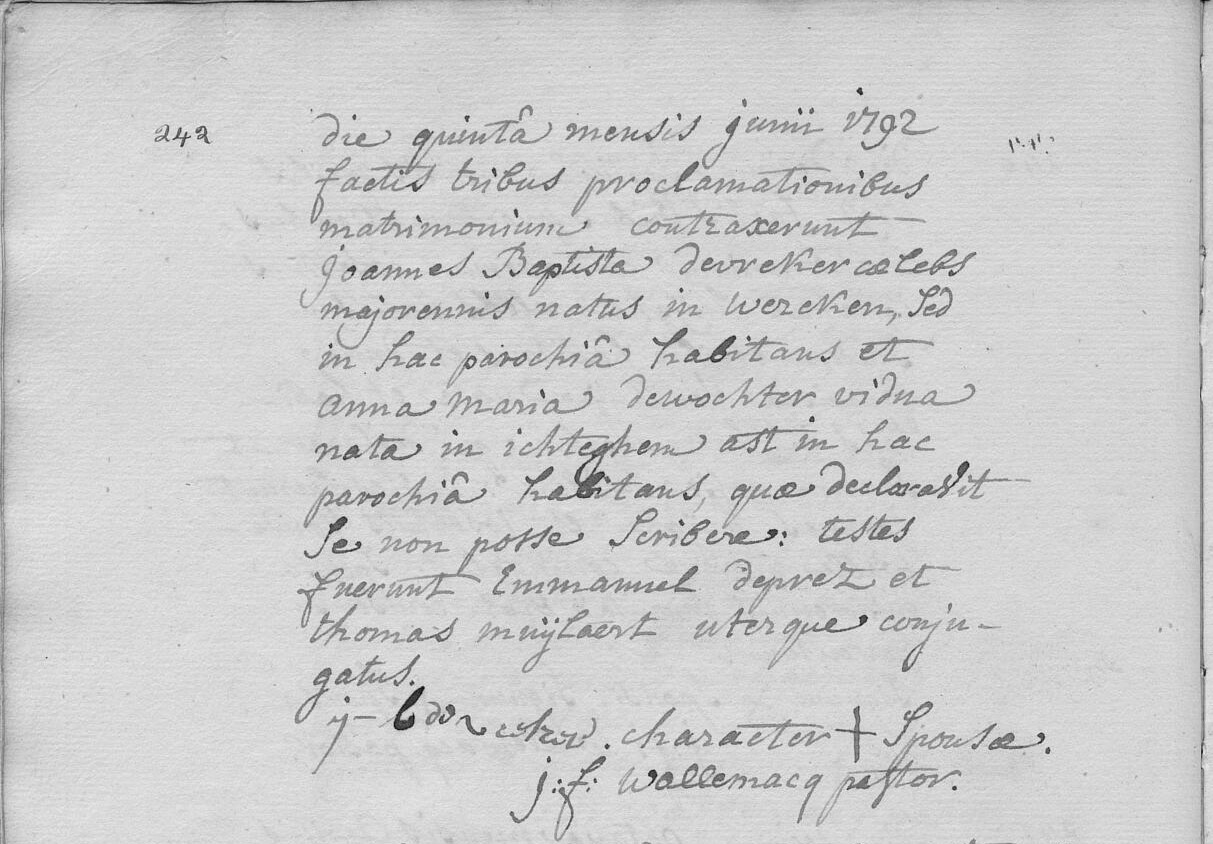 242
die quintâ mensis junii 1792
factis tribus proclamationibus
matrimonium contraxerunt
joannes Baptista devreker cælebs
majorennis natus in Wercken, sed
in hac parochiâ habitans et
anna maria dewochter vidua
nata in ichteghem ast in hac
parochiâ habitans, quæ declaravit
se non posse scribere: testes
fuerunt Emmanuel deprez et
thomas muÿlaert uterque conju-
gatus.
j - b . character + sponsæ.
j: f: Wallemacq pastor.